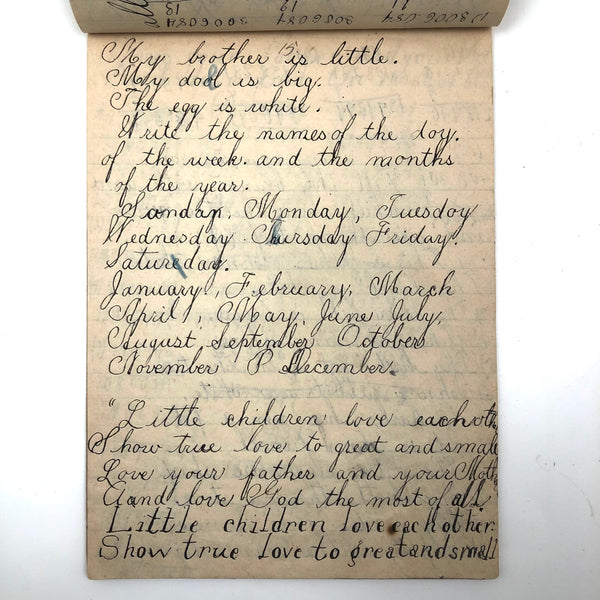 18 19
3006084 3086084 3086084 3006.084
15
My brother is little.
My doll is big.
The egg is white.
Write the names of the doy.
of the week. and the months
of the year.
Sandan, Monday, Tuesdoy
Wednesday Thursday Friday.
Satureday.
January, February, March
April, May, June July,
August, September October
November P December.
"Little children love each othe
Show true love to great and small
Love your father and your Moth
Aand love God the most of all
Little children love each other.
Show true love to great and small